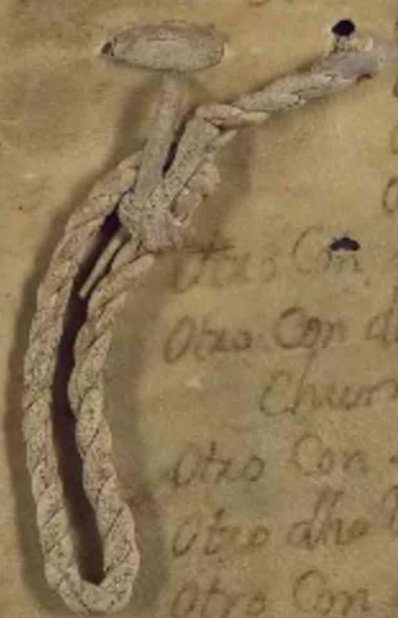 Otro Con
Otro Con d
Otro Con
Otro dho
Otro Con